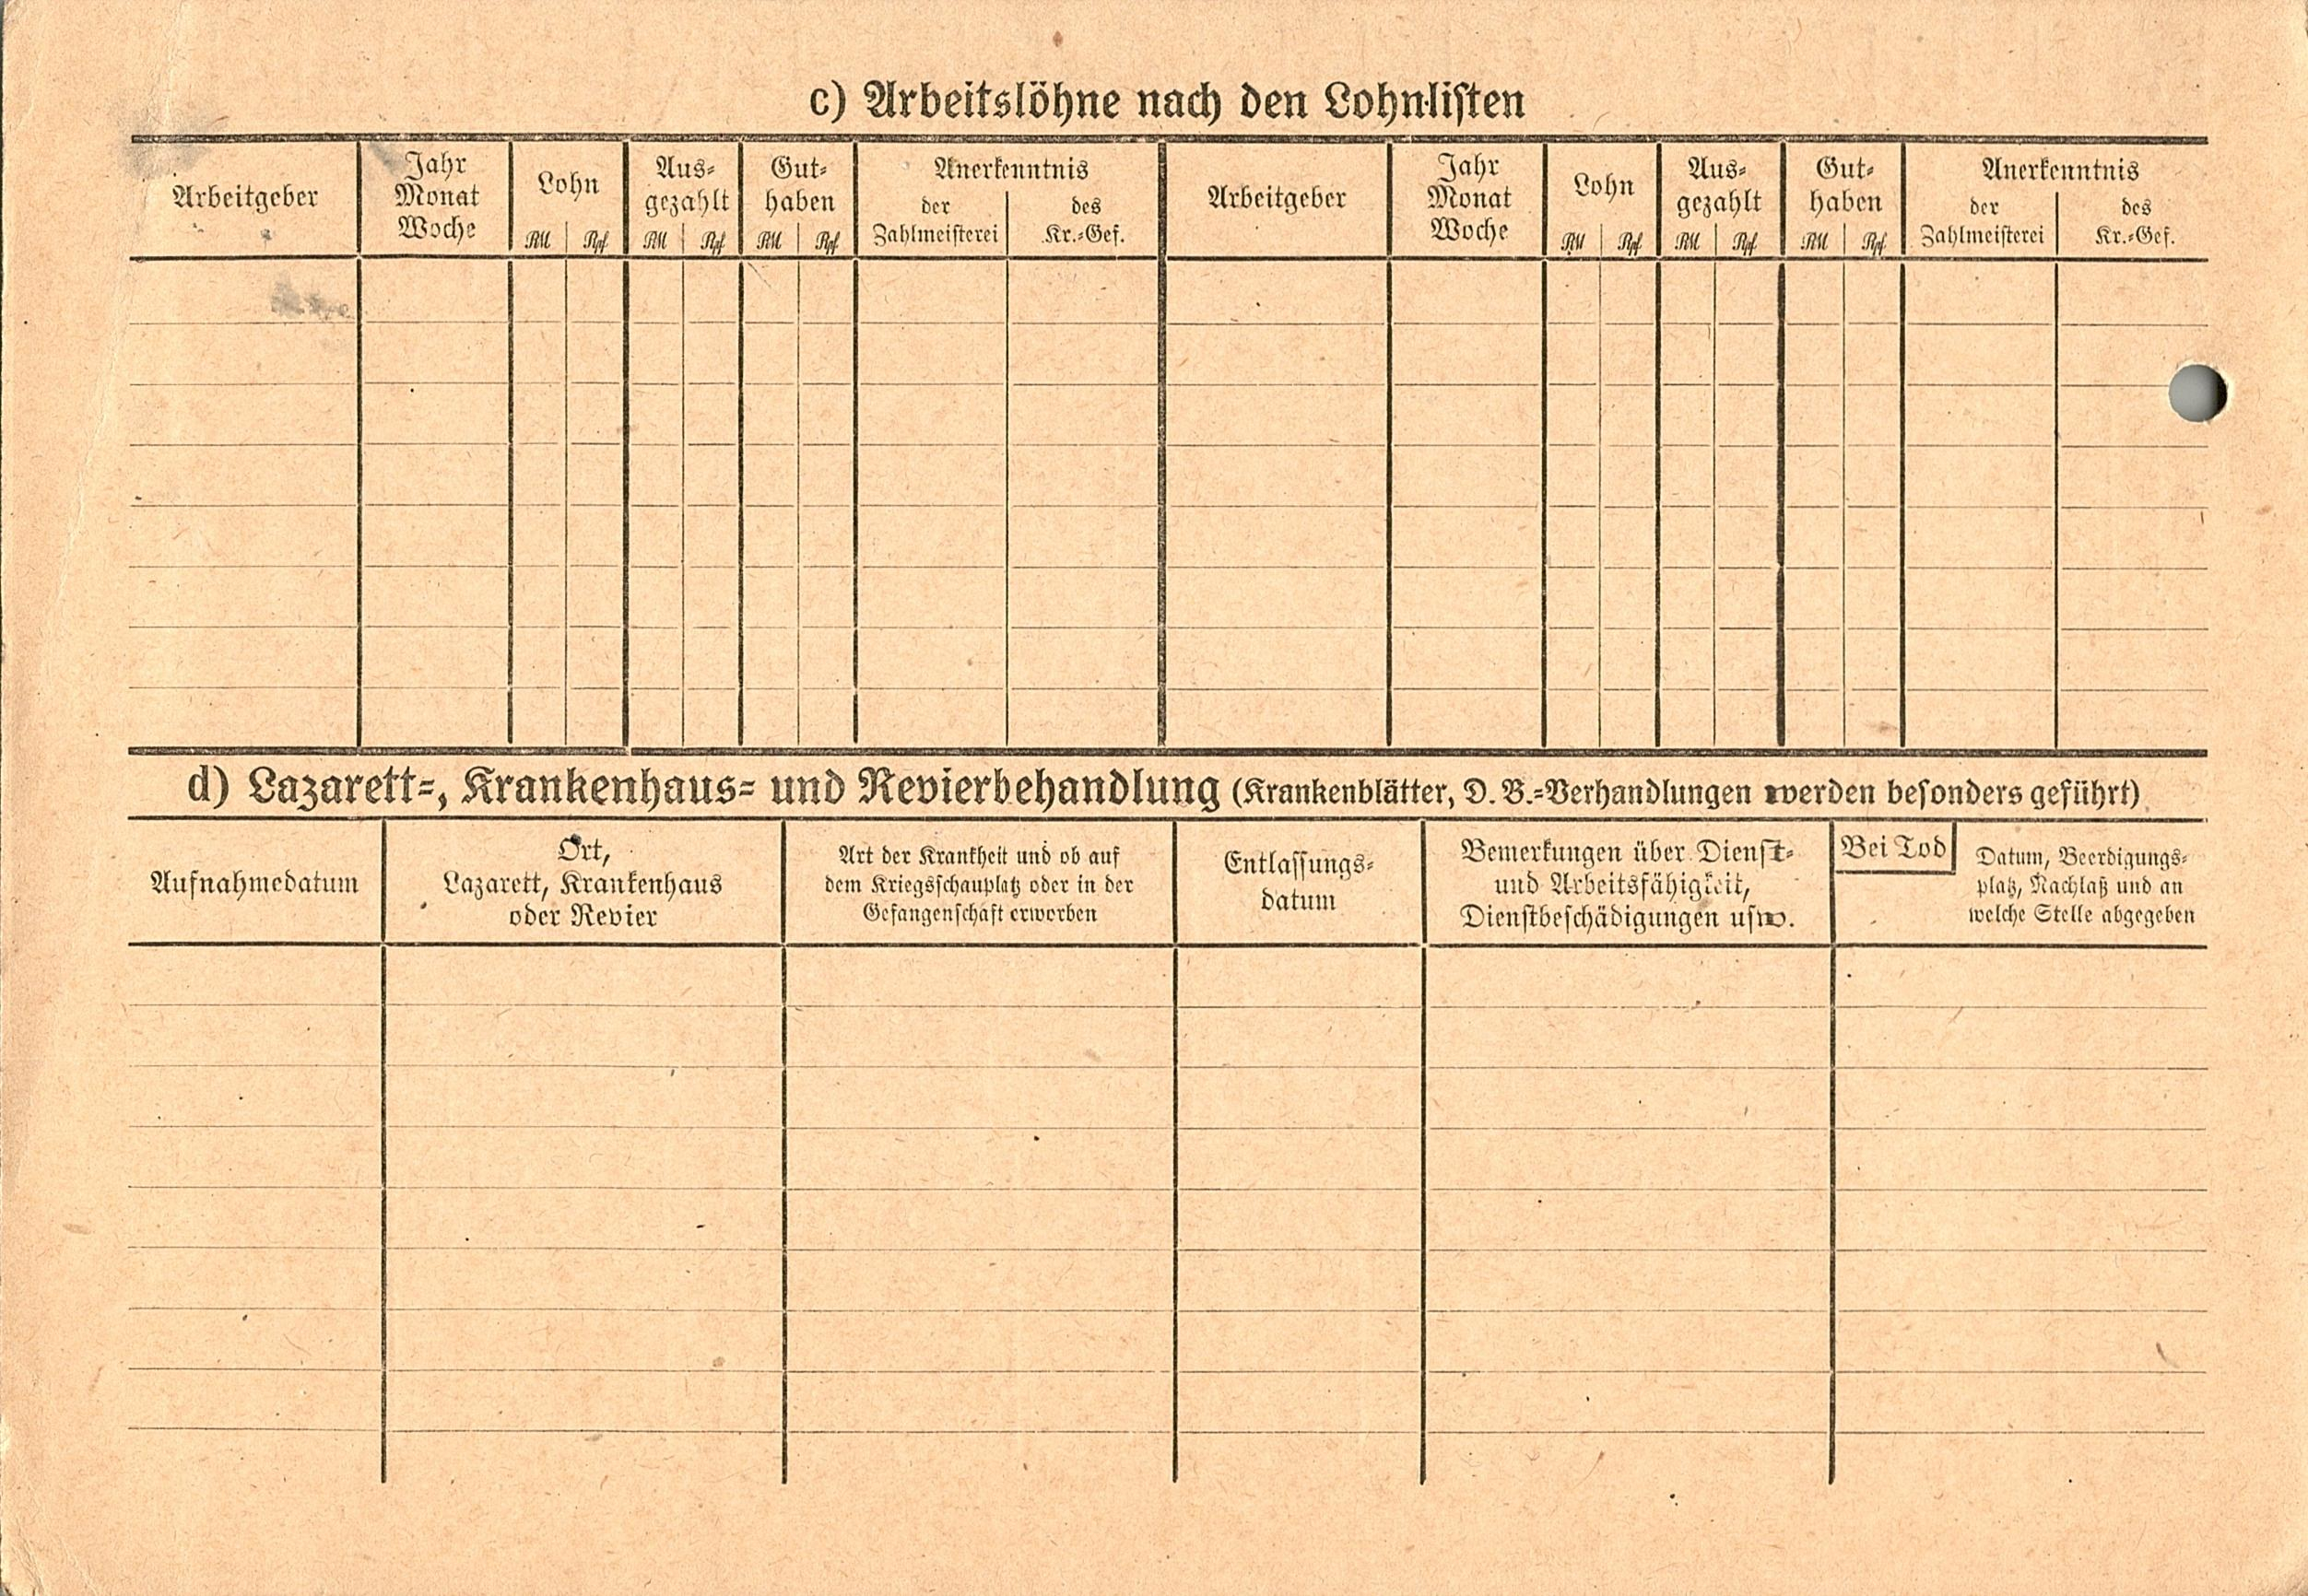 c) Arbeitslöhne nach den Lohnlisten
Arbeitgeber
Jahr
Monat
Woche
Lohn
RM Rpf
Aus-
gezahlt
RM Rpf
Gut-
haben
RM Rpf
Anerkenntnis
der
Zahlmeisterei
des
Kr.-Gef.
Arbeitgeber
Jahr
Monat
Woche
Lohn
RM Rpf
Aus-
gezahlt
RM Rpf
Gut-
haben
RM Rpf
Anerkenntnis
der
Zahlmeisterei
des
Kr.-Gef.
d) Lazarett-, Krankenhaus- und Revierbehandlung (Krankenblätter, D. B.-Verhandlungen werden besonders geführt)
Aufnahmedatum
Ort,
Lazarett, Krankenhaus
oder Revier
Art der Krankheit und ob auf
dem Kriegsschauplatz oder in der
Gefangenschaft erworben
Entlassungs-
datum
Bemerkungen über Dienst-
und Arbeitsfähigkeit,
Dienstbeschädigungen usw.
Bei Tod
Datum, Beerdigungs-
platz, Nachlaß und an
welche Stelle abgegeben